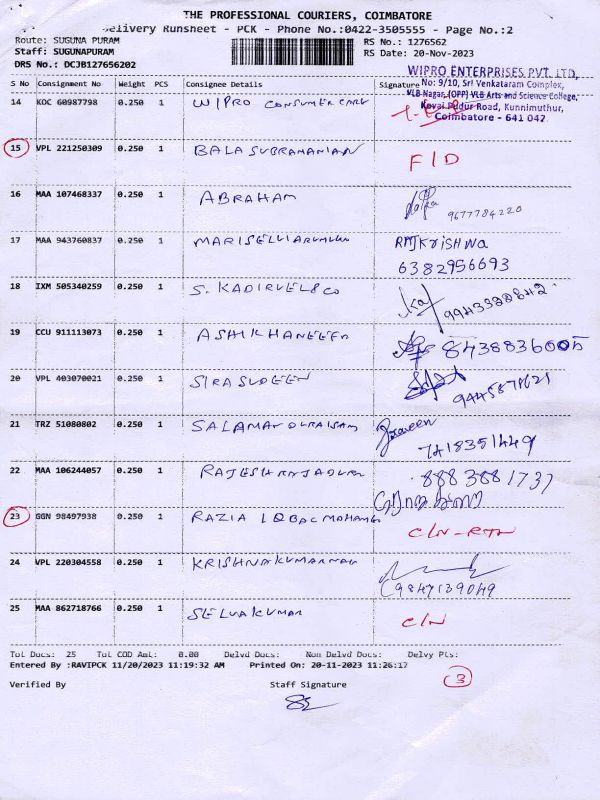 THE PROFESSIONAL COURIERS, COIMBATORE
Delivery Runsheet - PCK - Phone No.:0422-3505555 - Page No.:2
Route: SUGUNA PURAM RS No.: 1276562
Staff: SUGUNAPURAM RS Date: 20-Nov-2023
DRS No.: DCJB127656202
WIPRO ENTERPRISES PVT. LTD,
No: 9/10, Sri Venkataram Complex,
VLB Nagar, (OPP) VLB Arts and Science College,
Kovai Pudur Road, Kunnimuthur,
Coimbatore - 641 042.
S No Consignment No Weight PCS Consignee Details Signature
14 KOC 60987798 0.250 1 WIPRO CONSUMER CARE
15 VPL 221250309 0.250 1 BALA SUBRAMANIAN F/D
16 MAA 107468337 0.250 1 ABRAHAM 9677784220
17 MAA 943760837 0.250 1 MARISELVIARUMUGU RMJKRISHNA
6382956693
18 IXM 505340259 0.250 1 S. KADIRVEL&CO 9943328842
19 CCU 911113073 0.250 1 ASHIKHANEEFA 8438836005
20 VPL 403070021 0.250 1 SIRASUDEEN 9445871621
21 TRZ 51080802 0.250 1 SALAMAT Praveen
7418351449
22 MAA 106244057 0.250 1 RAJESH 8883881737
23 GGN 98497938 0.250 1 RAZIA IQBAL MOHAMED
C/N-RTN
24 VPL 220304558 0.250 1 KRISHNAKUMARNAG
9847139049
25 MAA 862718766 0.250 1 SELVAKUMAR C/N
Tot Docs: 25 Tot COD Amt: 0.00 Delvd Docs: Non Delvd Docs: Delvy Pts:
Entered By :RAVIPCK 11/20/2023 11:19:32 AM Printed On: 20-11-2023 11:26:17
3
Verified By Staff Signature